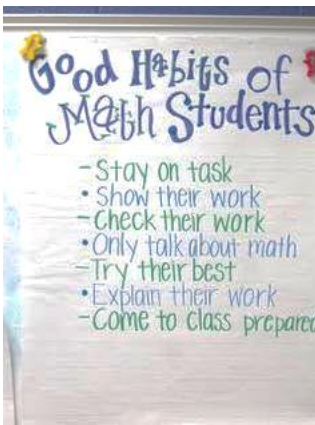 Good Habits of
Math Students
- Stay on task
• Show their work
- Check their work
• Only talk about math
- Try their best
• Explain their work
- Come to class prepared